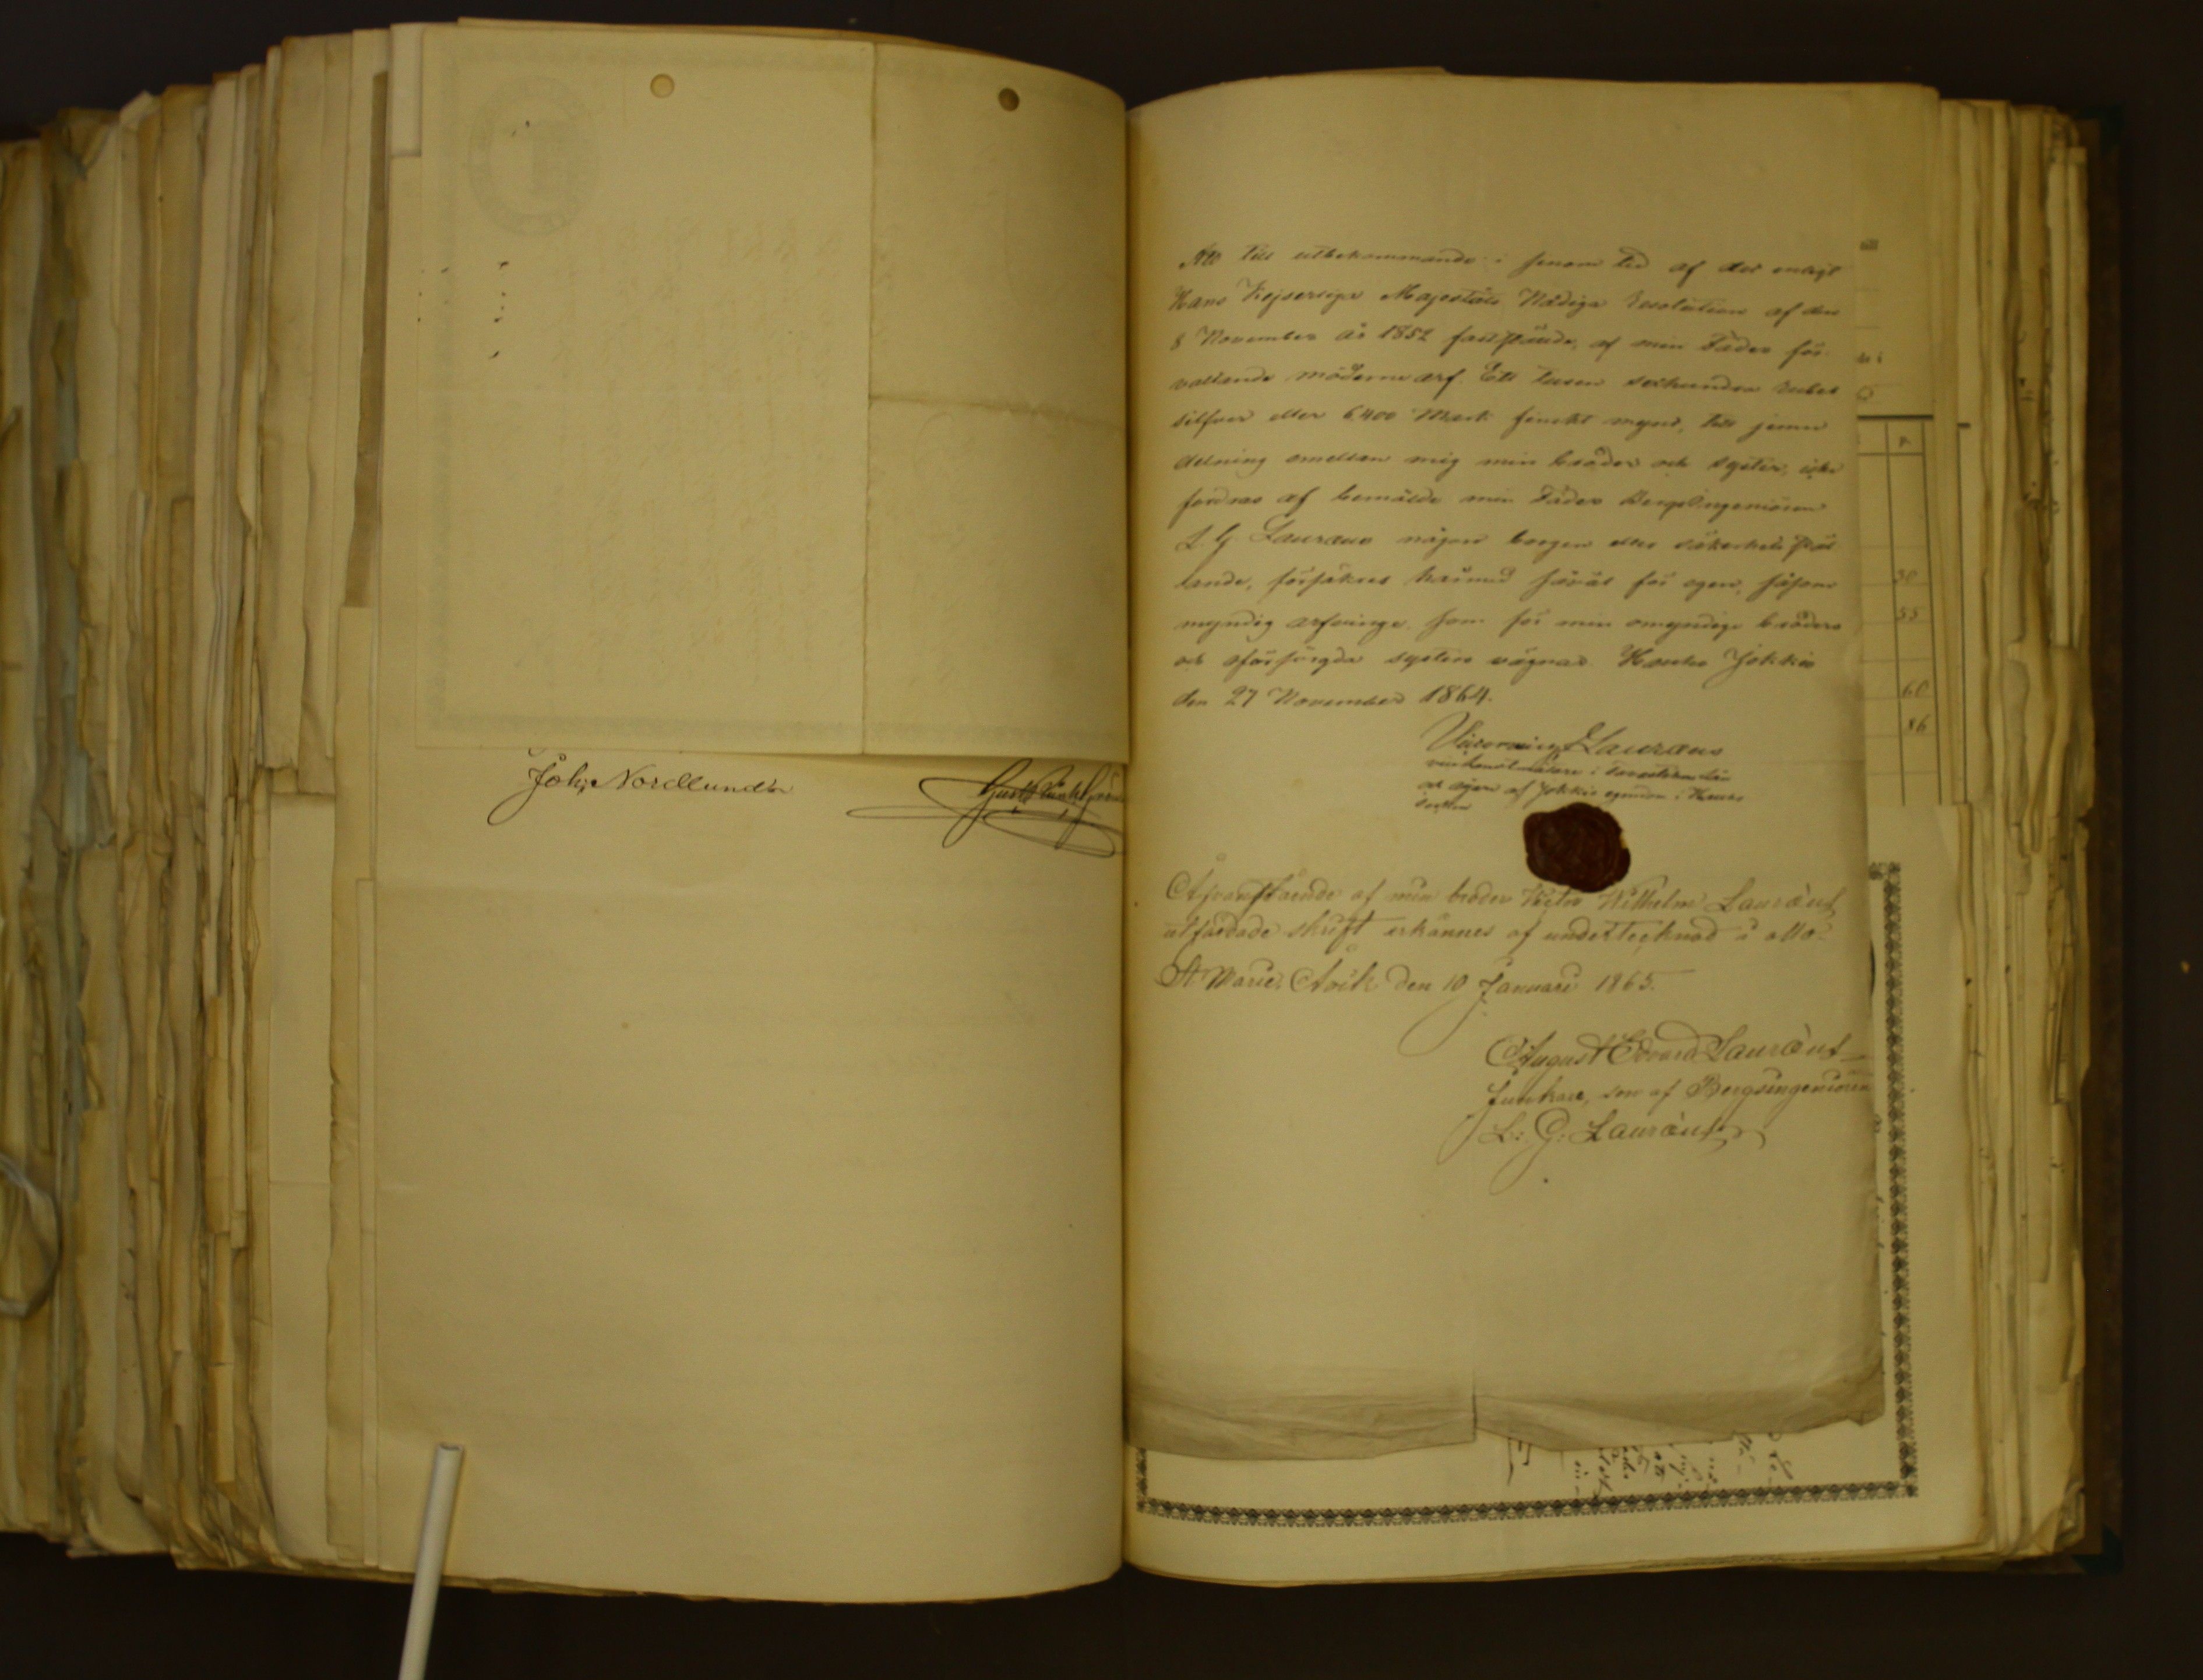 Joh: Nordlund
Att till utbekommande i sinom tid af det enligt
Hans Kejserliga Majestäts Nådiga Resolution af den
8 November år 1852 fastställde, af min Fader för-
vallande möderne arf. Ett tusen sexhundra rubel
silfver eller 6400 Mark finskt mynt, till jemn
delning emellan mig min broder och syster, icke
fordras af bemälde min Fader Bergsingeniören
L. G. Lauræus någon borgen eller säkerhets stäl
lande, försäkras härmed såväl för egen, såsom
myndig arfvinge, som för min omyndige broders
och oförsörgda systers vägnar. Jokkis
den 27 November 1864.
Lauræus
i
och egare af Jokkis egendom i
socken
Ofvanstående af min broder Victor Wilhelm Lauræus
utfärdade skrift erkännes af undertecknad i allo.
St Marie den 10 Januari 1865.
August Edvard Lauræus
Junkare, son af Bergsingeniören
L: G: Lauræus
30
55
60
86